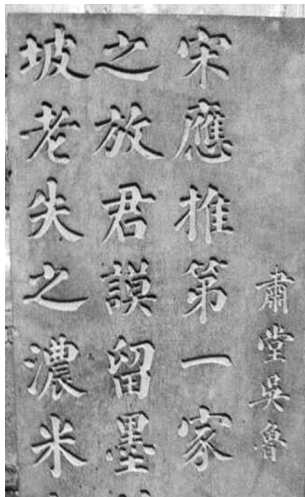 肅堂吳魯
宋應推第一家
之放君謨留墨
坡老失之濃米